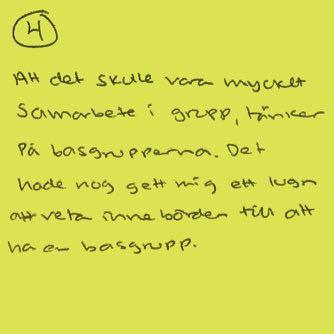 4
Att det skulle vara mycket
samarbete i grupp, tänker
på basgrupperna. Det
hade nog gett mig ett lugn
att veta innebörden till att
ha en basgrupp.